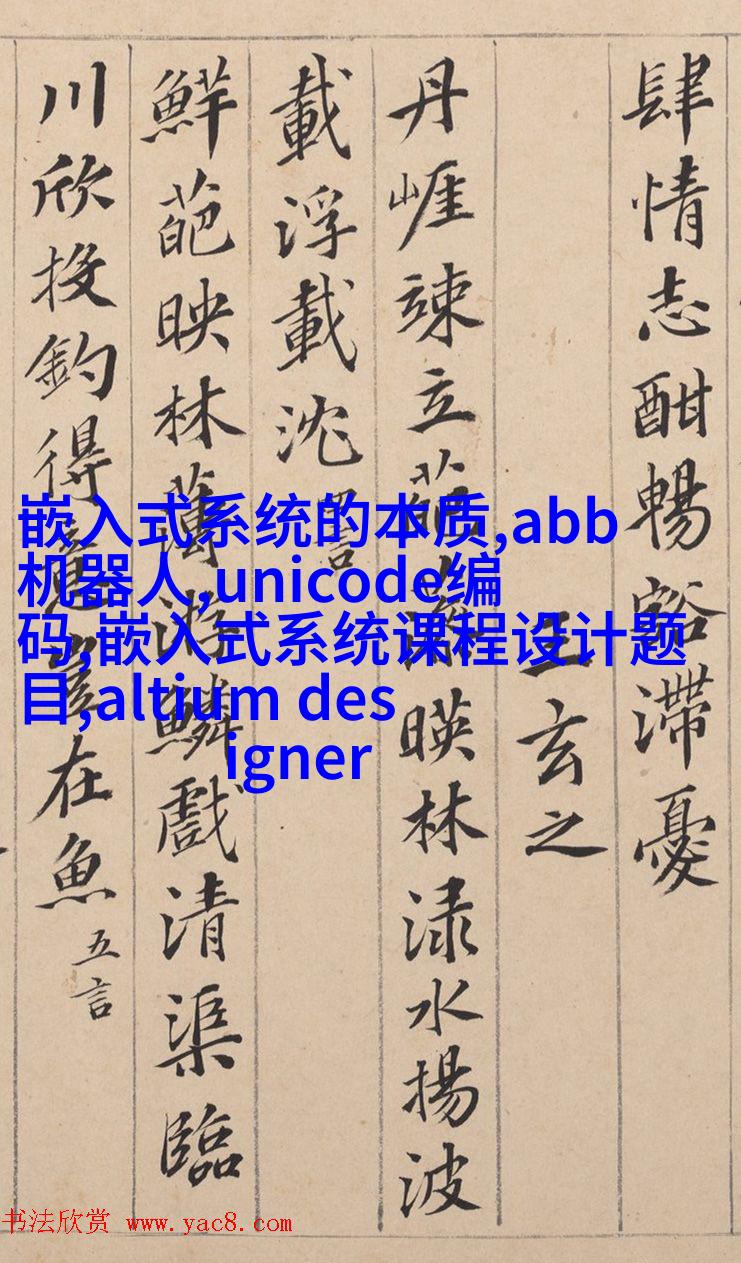 肆情志酣暢豁滯憂
王玄之
丹崕竦立葩藻暎林渌水揚波
載浮載沈
鮮葩映林薄游鱗戲清渠臨
川欣投釣得意豈在魚 五言
嵌入式系统的本质,abb
机器人,unicode编
码,嵌入式系统课程设计题
目,altium des
igner
书法欣赏 www.yac8.com